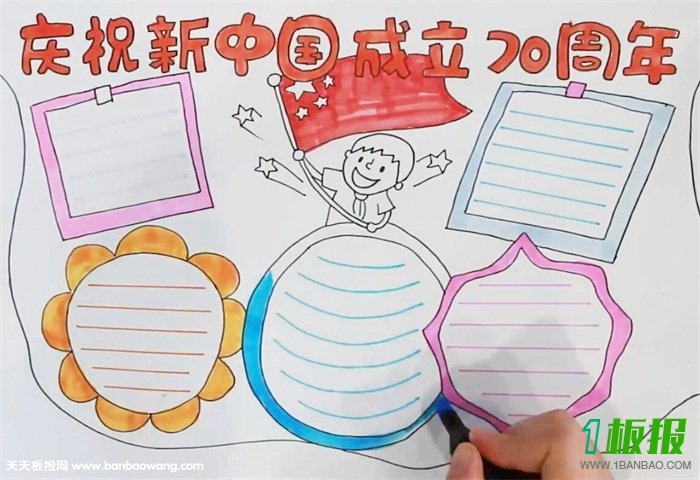 庆祝新中国成立70周年
1板报
WWW.1BANBAO.COM
天天板报网 www.banbaowang.com